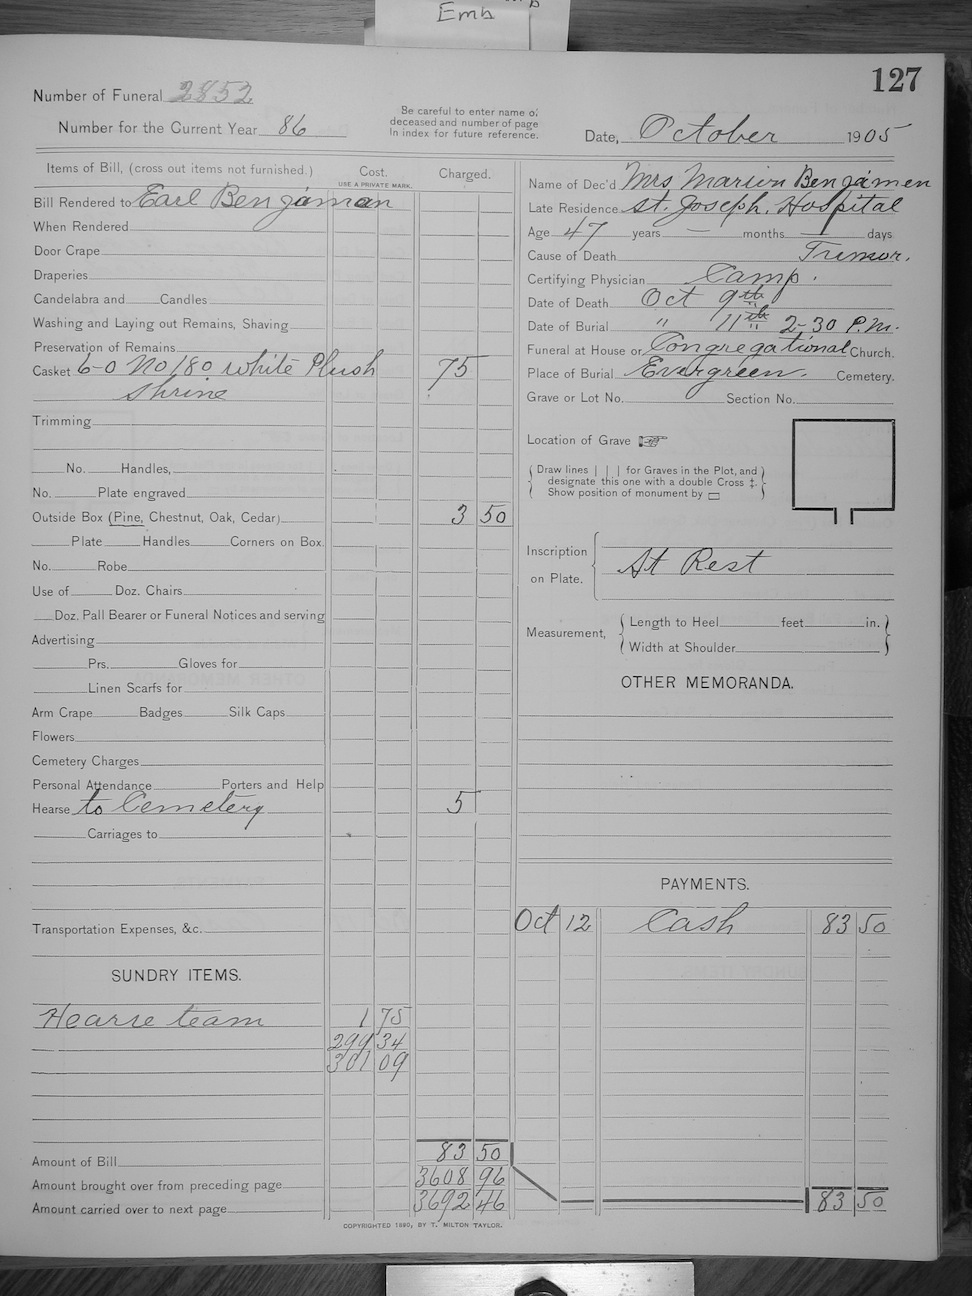 Emb
127
Number of Funeral 2852
Number for the Current Year 86
Be careful to enter name of
deceased and number of page
In index for future reference.
Date, October 1905
Items of Bill, (cross out items not furnished.)
Cost.
USE A PRIVATE MARK.
Charged.
Bill Rendered to Earl Benjáman
When Rendered
Door Crape
Draperies
Candelabra and Candles
Washing and Laying out Remains, Shaving
Preservation of Remains
Casket 6-0 No 180 white Plush 75
shrine
Trimming
No. Handles,
No. Plate engraved
Outside Box (Pine, Chestnut, Oak, Cedar) 3 50
Plate Handles Corners on Box.
No. Robe
Use of Doz. Chairs
Doz. Pall Bearer or Funeral Notices and serving
Advertising
Prs. Gloves for
Linen Scarfs for
Arm Crape Badges Silk Caps
Flowers
Cemetery Charges
Personal Attendance Porters and Help
Hearse to Cemetery 5
Carriages to
Transportation Expenses, &c.
SUNDRY ITEMS.
Hearse team 1 75
299 34
301 09
Amount of Bill 83 50
Amount brought over from preceding page 3608 96
Amount carried over to next page 3692 46
COPYRIGHTED 1890, BY T. MILTON TAYLOR.
Name of Dec'd Mrs Marion Benjámen
Late Residence St. Joseph. Hospital
Age 47 years — months — days
Cause of Death Tumor.
Certifying Physician Camp.
Date of Death Oct 9th
Date of Burial " 11th 2-30 P.M.
Funeral at House or Congregational Church.
Place of Burial Evergreen. Cemetery.
Grave or Lot No. Section No.
Location of Grave ☞
Draw lines | | | for Graves in the Plot, and
designate this one with a double Cross ‡.
Show position of monument by ▭
Inscription
on Plate. At Rest
Measurement, Length to Heel feet in.
Width at Shoulder
OTHER MEMORANDA.
PAYMENTS.
Oct 12 Cash 83 50
83 50